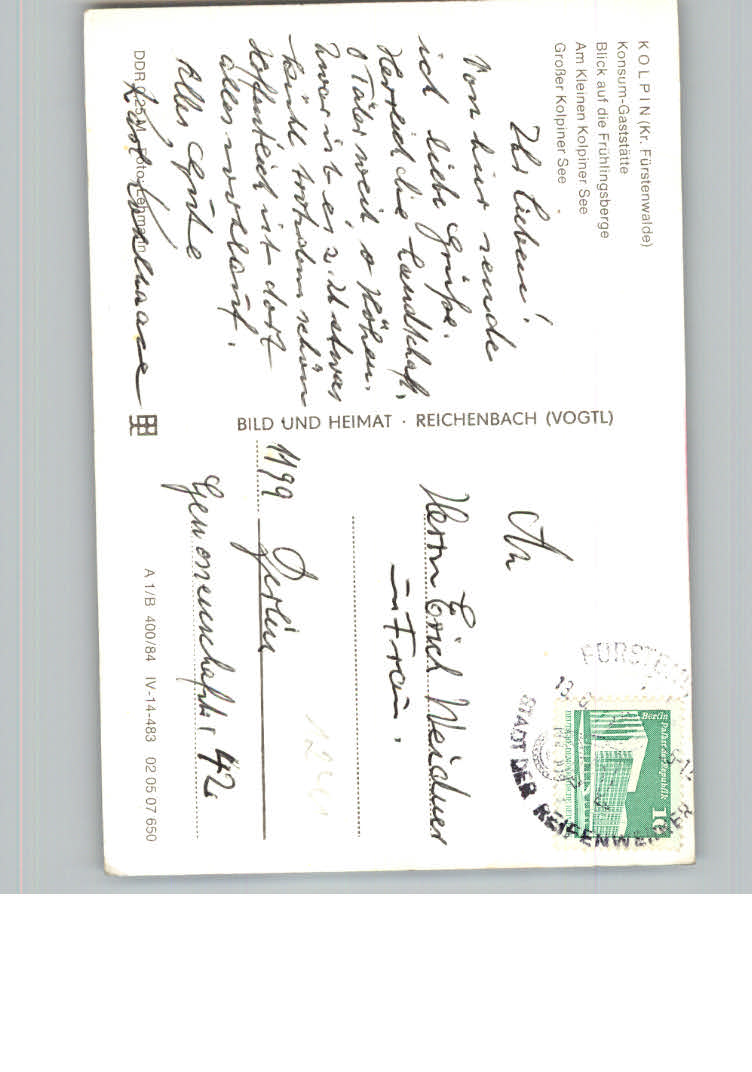 KOLPIN (Kr. Fürstenwalde)
Konsum-Gaststätte
Blick auf die Frühlingsberge
Am Kleinen Kolpiner See
Großer Kolpiner See
Ihr Lieben!
Von hier sende
ich liebe Grüße.
Herrlich die Landschaft.
o Täler weit, o Höhen.
Zwar ist es z. Zt etwas
kühl trotzdem schön
Hoffentlich ist dort
alles wohlauf.
Alles Gute
DDR 0,25 M Foto: Lehmann
BILD UND HEIMAT · REICHENBACH (VOGTL)
An
Herrn Erich Weidner
u. Frau
1199 Berlin
Genossenschaftstr. 42
A 1/B 400/84 IV-14-483 02 05 07 650
Berlin Palast der Republik
10
STADT DER REIFENWERKER